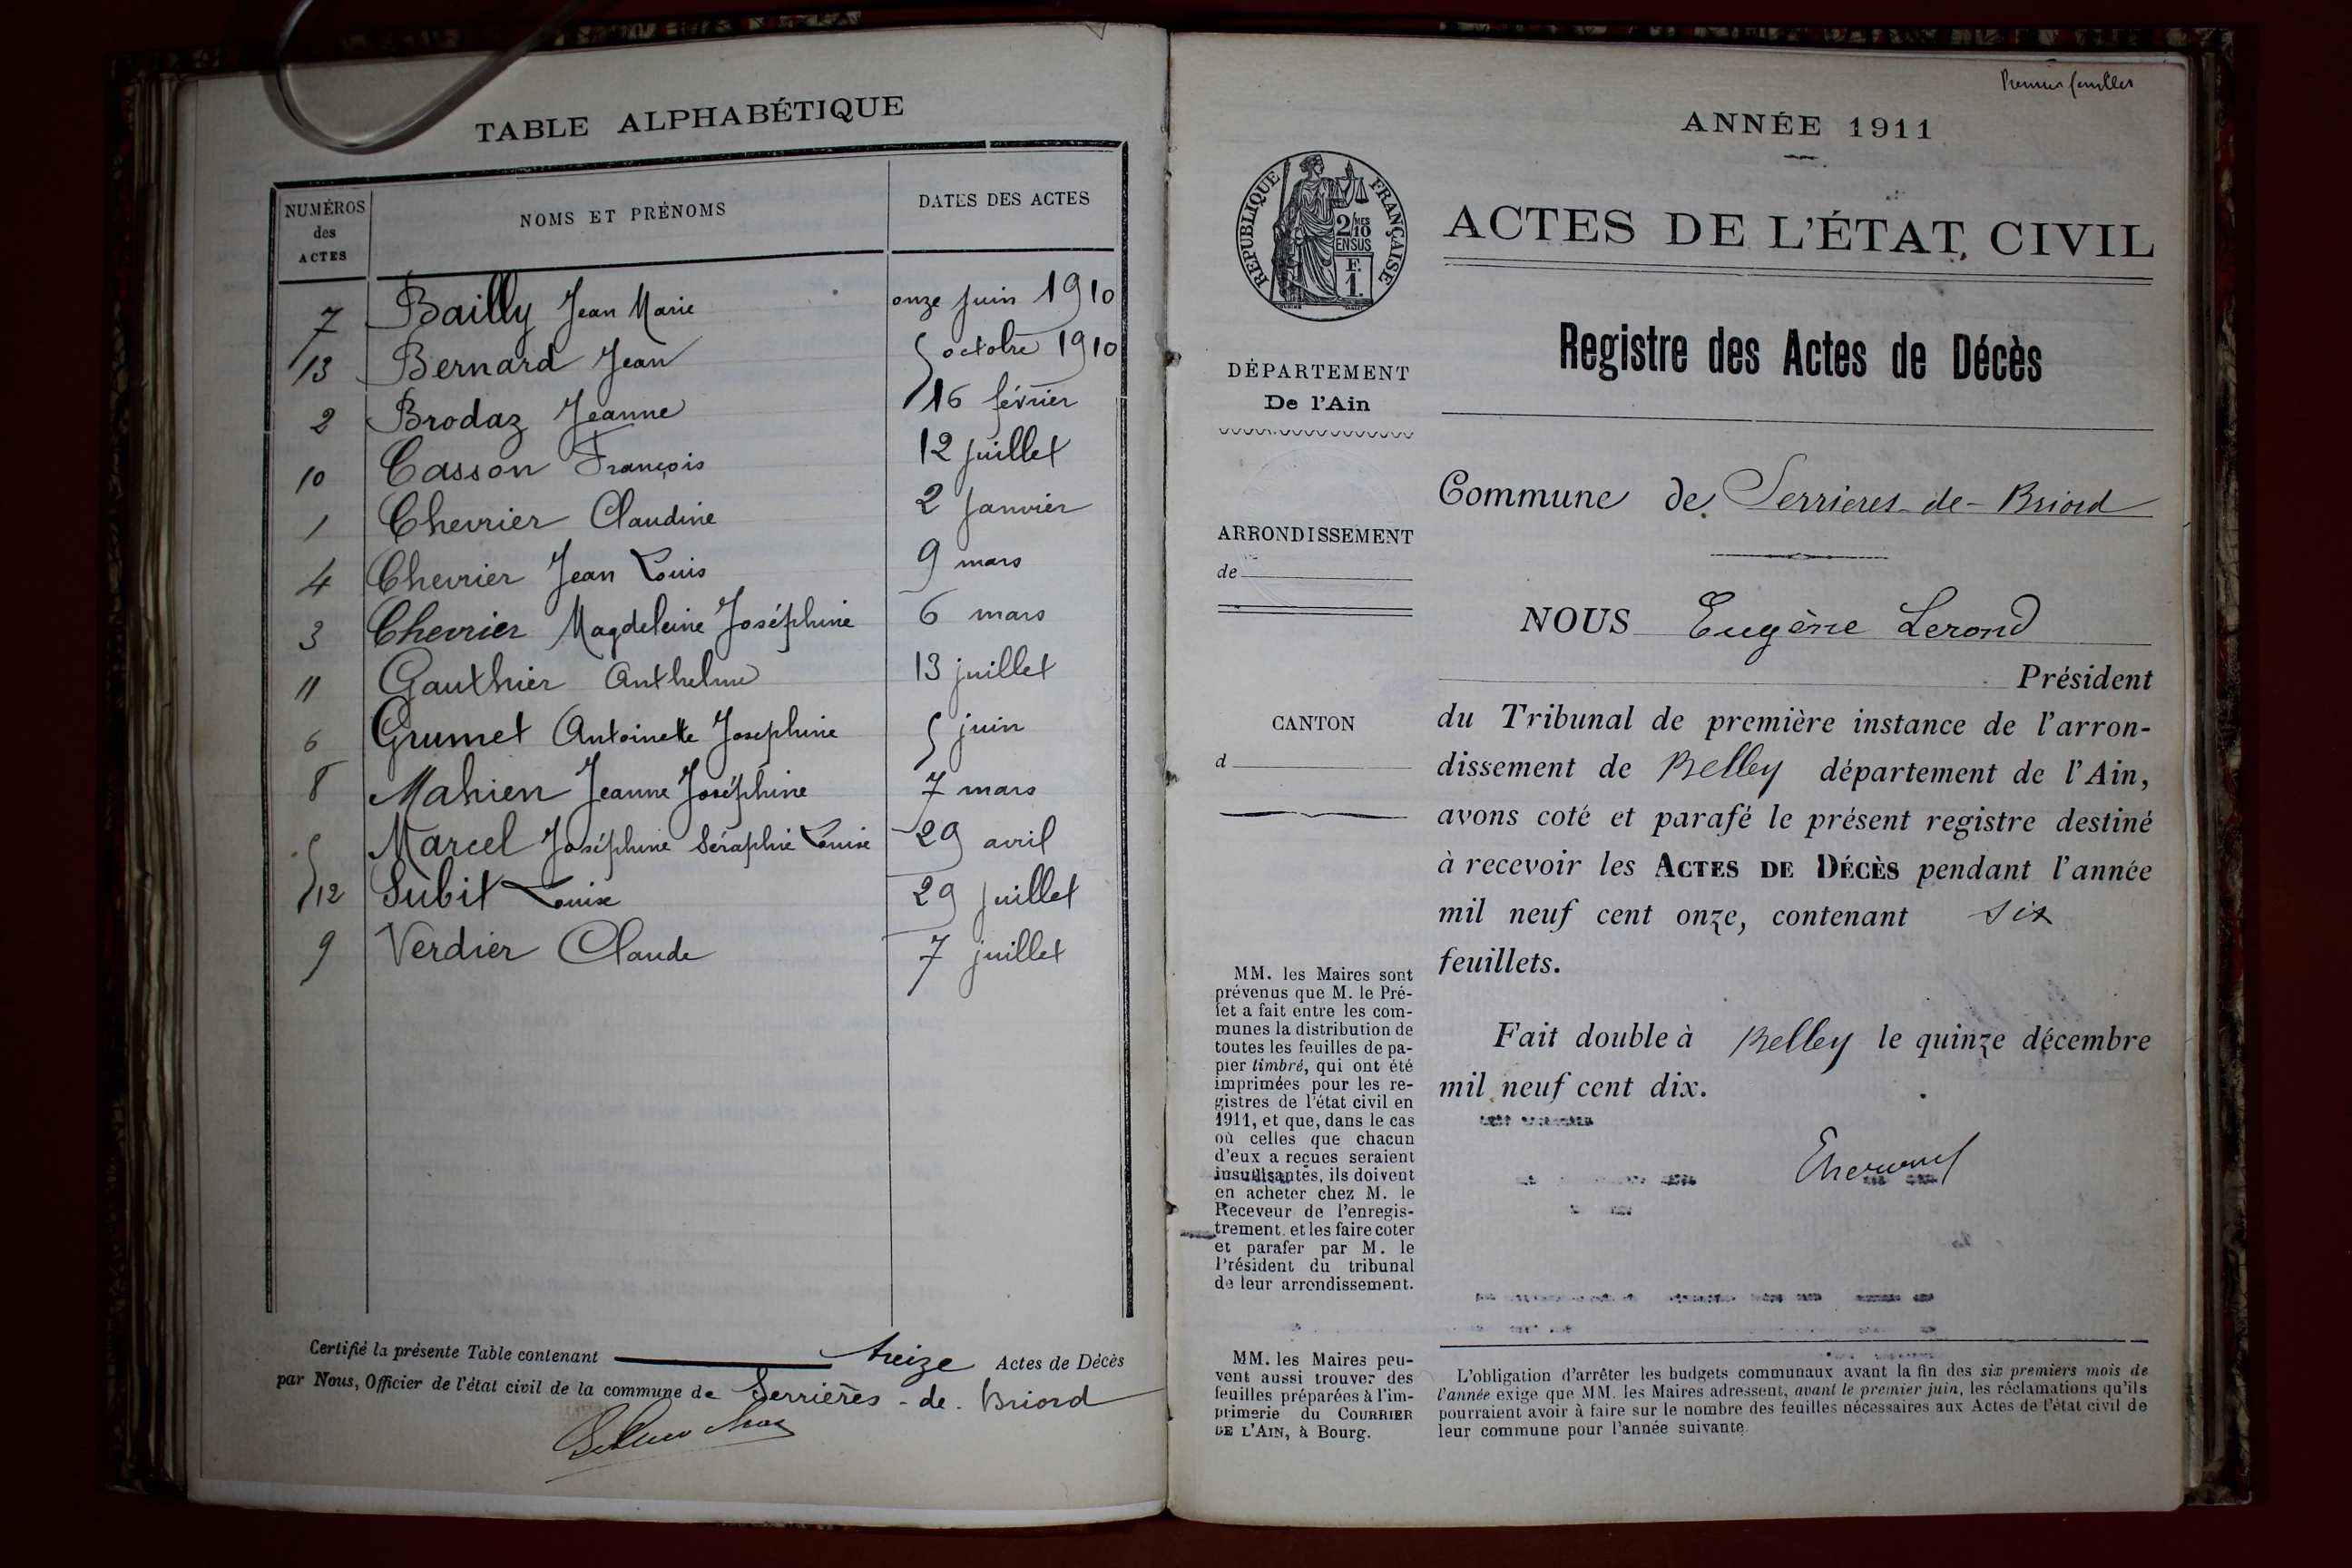 TABLE ALPHABÉTIQUE
NUMÉROS des ACTES NOMS ET PRÉNOMS DATES DES ACTES
7 Bailly Jean Marie onze juin 1910
13 Bernard Jean 5 octobre 1910
2 Brodaz Jeanne 16 février
10 Casson François 12 juillet
1 Chevrier Claudine 2 Janvier
4 Chevrier Jean Louis 9 mars
3 Chevrier Magdeleine Joséphine 6 mars
11 Gauthier Anthelme 13 juillet
6 Grumet Antoinette Josephine 5 juin
8 Mahien Jeanne Joséphine 7 mars
5 Marcel Joséphine Séraphie Louise 29 avril
12 Subit Louise 29 juillet
9 Verdier Claude 7 juillet
Certifié la présente Table contenant treize Actes de Décès
par Nous, Officier de l'état civil de la commune de Serrières-de-Briord
ANNÉE 1911
RÉPUBLIQUE FRANÇAISE
2/10 MES
EN SUS
F.
1.
ACTES DE L'ÉTAT CIVIL
Registre des Actes de Décès
DÉPARTEMENT
De l'Ain
ARRONDISSEMENT
de
CANTON
d
MM. les Maires sont
prévenus que M. le Pré-
fet a fait entre les com-
munes la distribution de
toutes les feuilles de pa-
pier timbré, qui ont été
imprimées pour les re-
gistres de l'état civil en
1911, et que, dans le cas
où celles que chacun
d'eux a reçues seraient
insuffisantes, ils doivent
en acheter chez M. le
Receveur de l'enregis-
trement, et les faire coter
et parafer par M. le
Président du tribunal
de leur arrondissement.
MM. les Maires peu-
vent aussi trouver des
feuilles préparées à l'im-
primerie du COURRIER
DE L'AIN, à Bourg.
Commune de Serrieres-de-Briord
NOUS Eugène Lerond
Président
du Tribunal de première instance de l'arron-
dissement de Belley département de l'Ain,
avons coté et parafé le présent registre destiné
à recevoir les ACTES DE DÉCÈS pendant l'année
mil neuf cent onze, contenant six
feuillets.
Fait double à Belley le quinze décembre
mil neuf cent dix.
L'obligation d'arrêter les budgets communaux avant la fin des six premiers mois de
l'année exige que MM. les Maires adressent, avant le premier juin, les réclamations qu'ils
pourraient avoir à faire sur le nombre des feuilles nécessaires aux Actes de l'état civil de
leur commune pour l'année suivante.